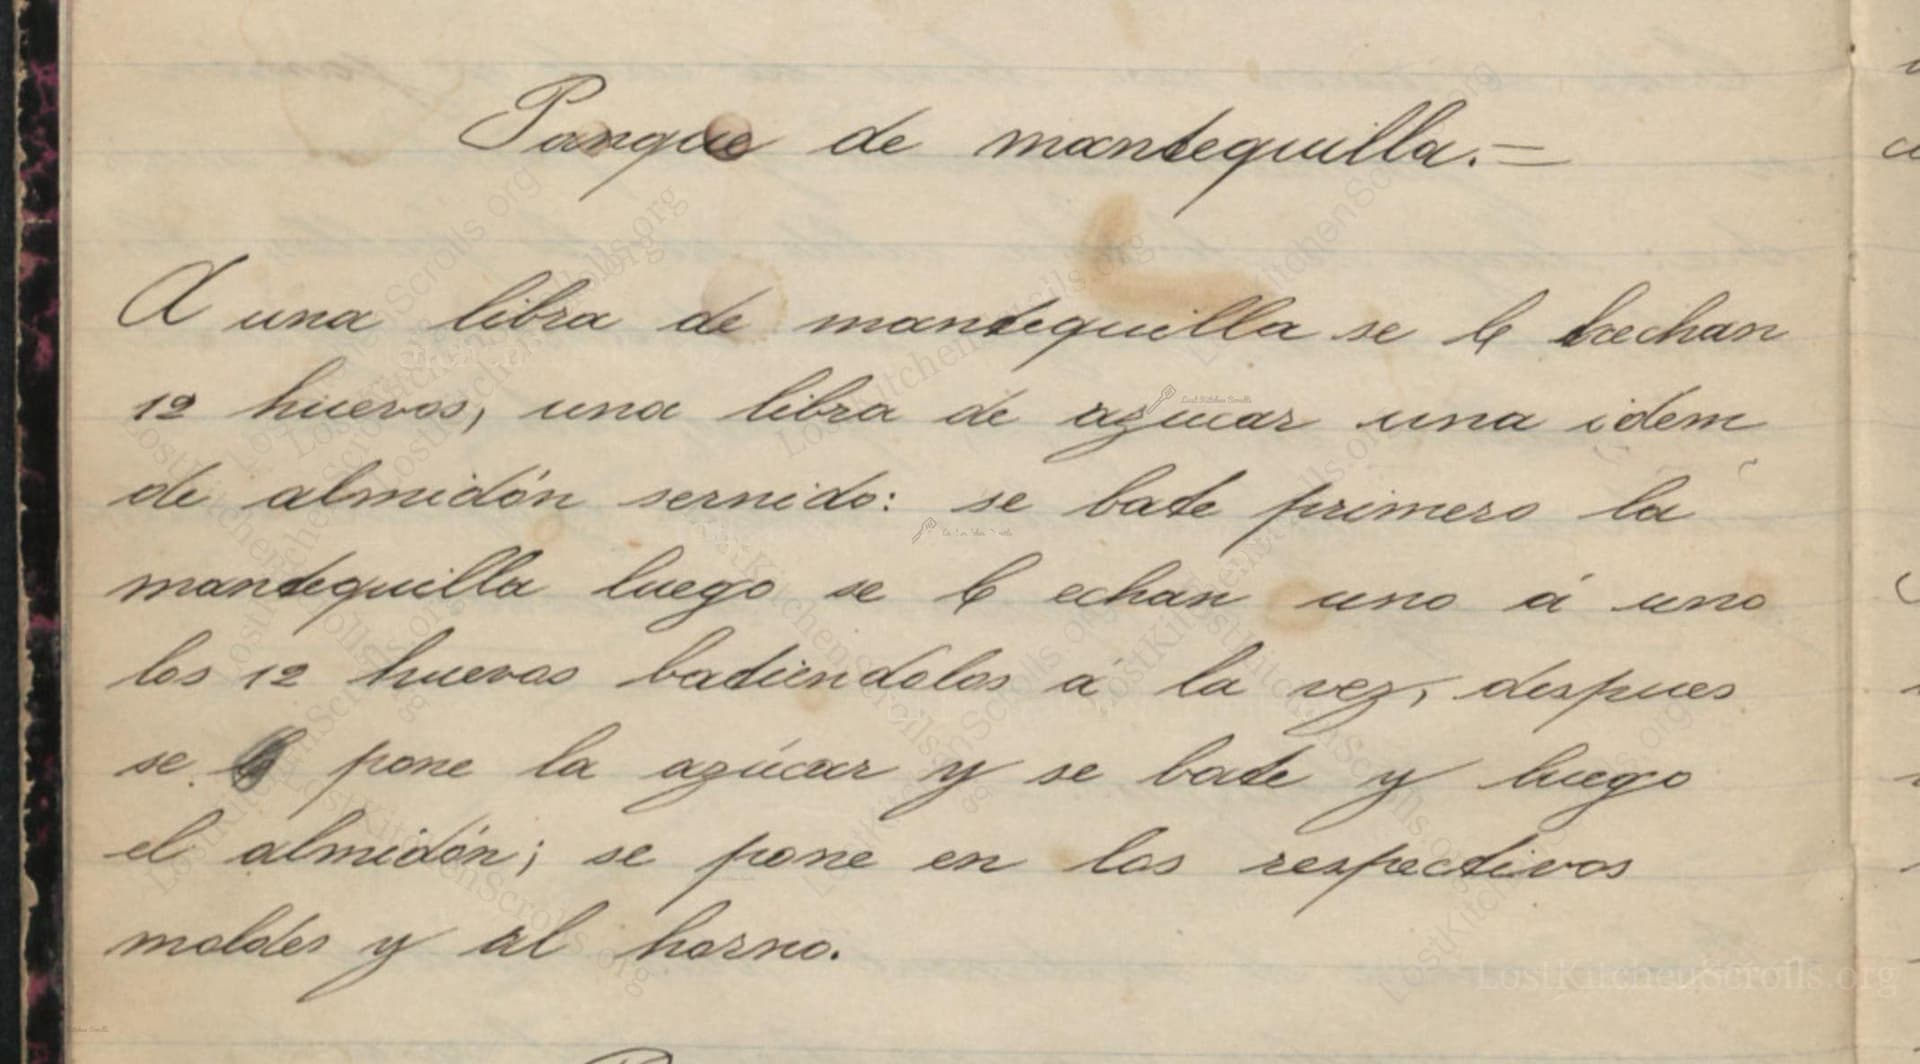 Panque de mantequilla.=
A una libra de mantequilla se le echan
12 huevos, una libra de azucar una idem
de almidón sernido: se bate primero la
mantequilla luego se le echan uno á uno
los 12 huevos batiendolos á la vez, despues
se pone la azúcar y se bate y luego
el almidón; se pone en los respectivos
moldes y al horno.
LostKitchenScrolls.org